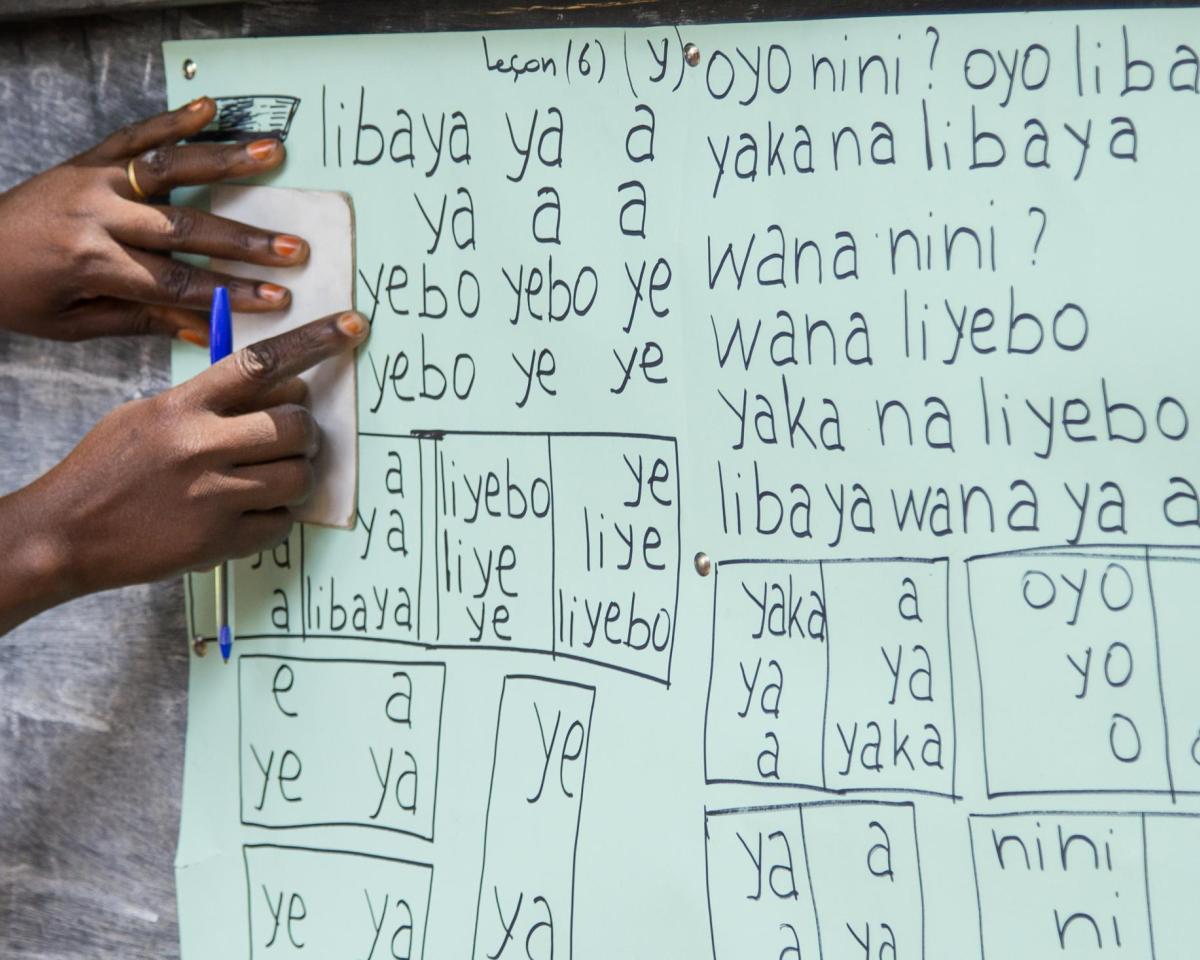 Leçon (6) (y)
libaya ya a
ya a a
yebo yebo ye
yebo ye ye
a liyebo ye
ya liye liye
a libaya ye liyebo
e a
ye ya
ye
ya
ye ya
oyo nini? oyo liba
yaka na libaya
wana nini?
wana liyebo
yaka na liyebo
libaya wana ya a
yaka a
ya ya
a yaka
oyo
yo
o
ya a
a ya
nini
ni